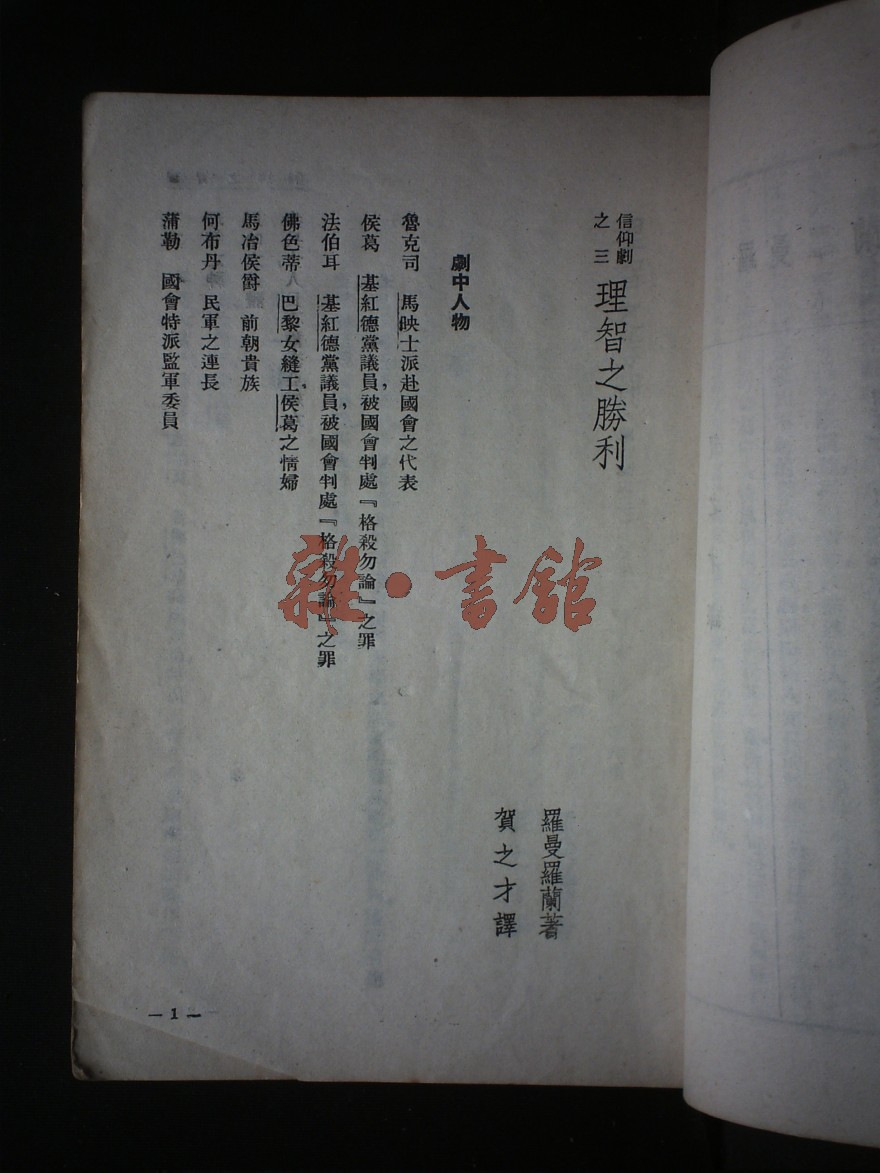 信仰劇之三
理智之勝利
羅曼羅蘭著
賀之才譯
劇中人物
魯克司 馬映士派赴國會之代表
侯葛 基紅德黨議員,被國會判處『格殺勿論』之罪
法伯耳 基紅德黨議員,被國會判處『格殺勿論』之罪
佛色蒂 巴黎女縫工,侯葛之情婦
馬冶侯爵 前朝貴族
何布丹 民軍之連長
蒲勒 國會特派監軍委員
— 1 —
雜·書館